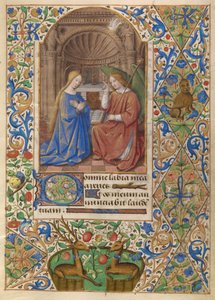 Domine labia mea
aperies
Et os meum an
nunciabit laudē
tuam.